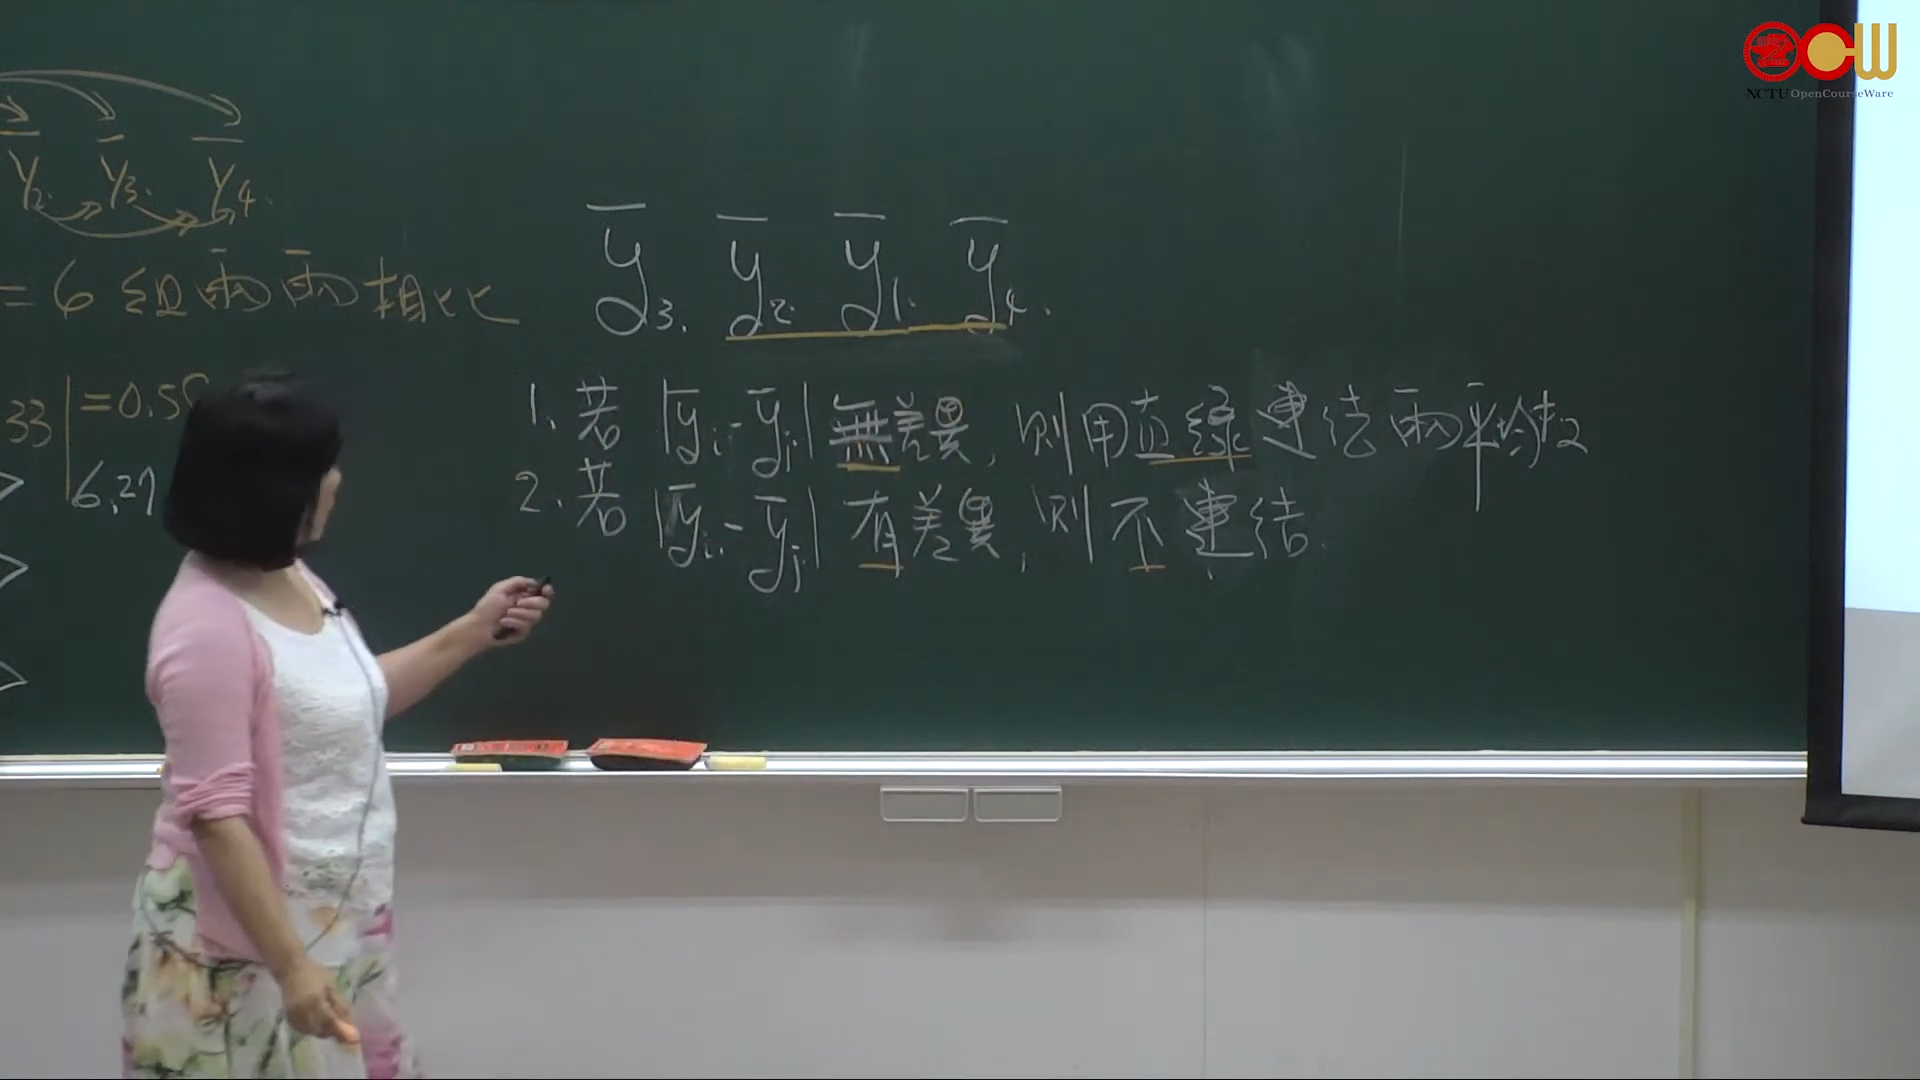 NCTU OpenCourseWare
y̅2. y̅3. y̅4.
= 6 組兩兩相比
33 | = 0.5
6.27
y̅3. y̅2. y̅1. y̅4.
1. 若 |y̅i. - y̅j.| 無差異, 則用直線連結兩平均数
2. 若 |y̅i. - y̅j.| 有差異, 則不連結.